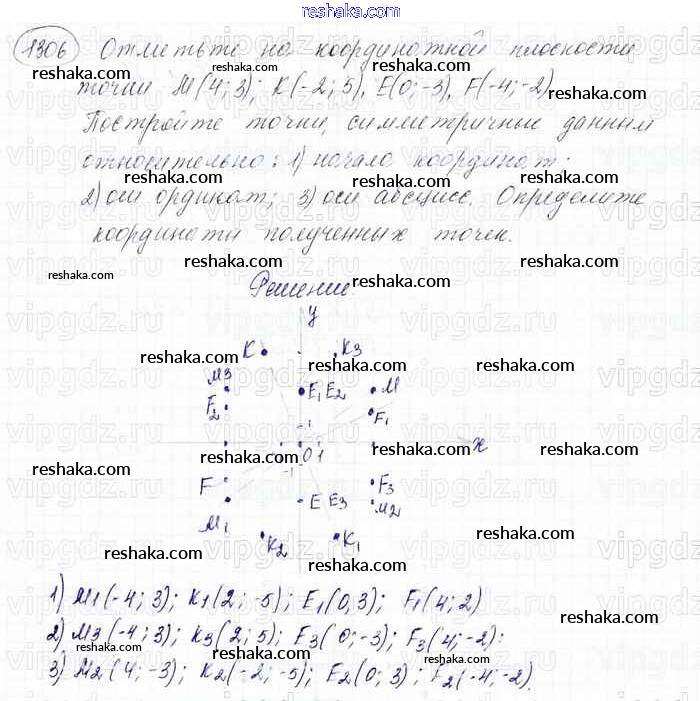 reshaka.com
1306 Отметьте на координатной плоскости
reshaka.com reshaka.com reshaka.com
точки M(4;3); K(-2;5), E(0;-3), F(-4;-2)
reshaka.com
Постройте точки, симметричные данным
reshaka.com reshaka.com
относительно: 1) начало координат;
reshaka.com reshaka.com
2) оси ординат; 3) оси абсцисс. Определите
reshaka.com
координаты полученных точек.
reshaka.com reshaka.com
reshaka.com
Решение.
reshaka.com
y
K K3
reshaka.com reshaka.com
M3 E1 E2 M
reshaka.com
F2 F1
reshaka.com reshaka.com
1
x
-1 0 1
reshaka.com reshaka.com
F F3
reshaka.com E E3 M2
reshaka.com
M1
K2 K1
reshaka.com reshaka.com reshaka.com
1) M1(-4;3); K1(2;-5); E1(0,3); F1(4;2)
reshaka.com reshaka.com
2) M3(-4;3); K3(2;5); E3(0;-3); F3(4;-2);
reshaka.com reshaka.com
3) M2(4;-3); K2(-2;-5); E2(0;3); F2(-4;-2).
reshaka.com